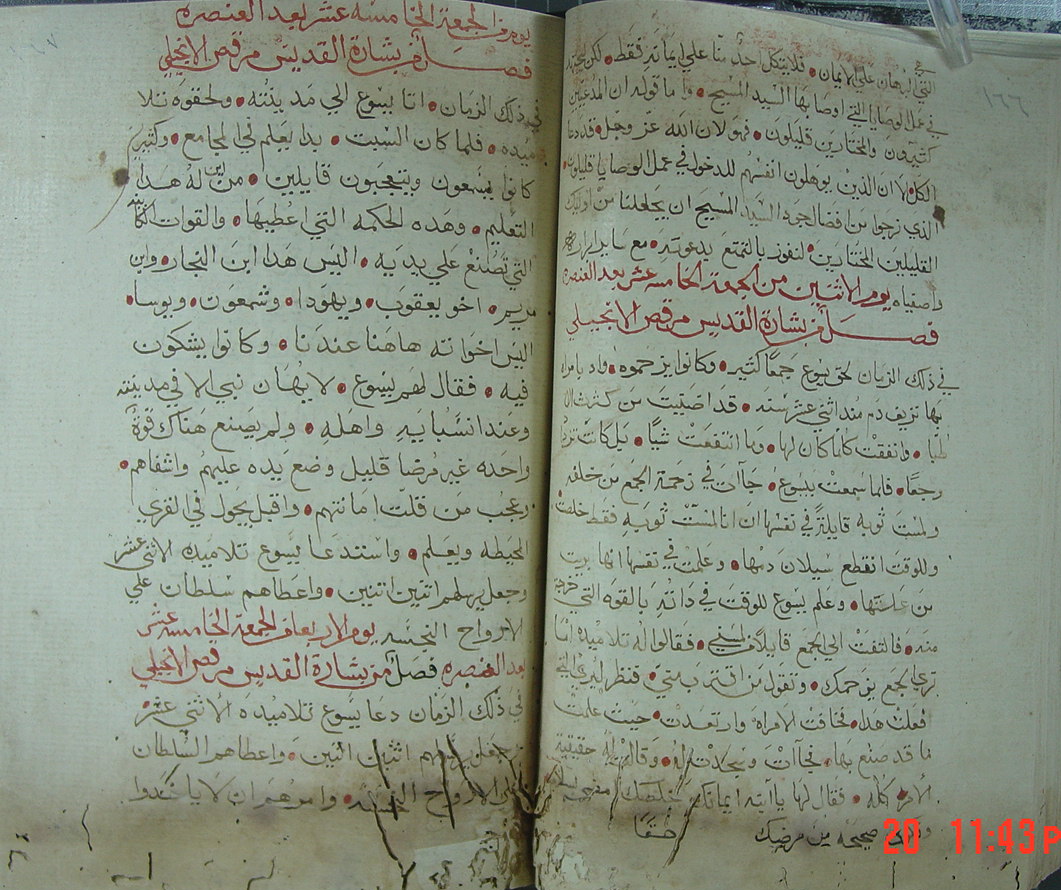 ١٦٦
في
التي البرهان على الايمان • فلا يتكل احد منا علي ايمانه فقط • لكن يجتهد
في عمل الوصايا التي اوصا بها السيد المسيح • واما قوله ان المدعيين
كثيرون والمختارين قليلون • فهو لان الله عز وجل • قد دعا
الكل • الا ان الذين يوهلون انفسهم للدخول في عمل الوصايا قليلون •
الذي نرجوا من افضال جوده السيد المسيح ان يجعلنا من اوليك
القليلين المختارين • لنفوز بالتمتع بدعوته • مع ساير ابراره
واصفياه يوم الاثنين من الجمعة الخامسه عشر بعد العنصره
فصل من بشارة القديس مرقص الانجيلي
في ذلك الزمان لحق يسوع جمعا كثير • وكانوا يزحموه • واد بامراه
بها نزيف دم منداثني عشر سنه • قد اصيبت من كثرت الا
طبا • وانفقت كلما كان لها • وما انتفعت شيا • بل كانت تزداد
رجعا • فلما سمعت بيسوع • جاات في زحمة الجمع من خلفه
ولمست توبه قايلة في نفسها ان انا لمست توبه فقط خلصت
وللوقت انقطع سيلان دمها • وعلمت في نفسها انها بريت
من علتها • وعلم يسوع للوقت في داته بالقوه التي خرجت
منه • فالتفت الي الجمع قايلا من لمسني • فقالوا له تلاميده اما
تري الجمع يزحمك • وتقول من اقترب مني • فنظر ليري التي
فعلت هدا • فخافت الامراه وارتعدت • حيث علمت
ما قد صنع بها • فجاات وسجدت له • وقالت له حقيقية
الامر كله • فقال لها يا ابنه ايمانك خلصك
صحيحه من مرضك
يوم من الجمعة الخامسه عشر بعد العنصره
فصل من بشارة القديس مرقص الانجيلي
في ذلك الزمان • اتا يسوع الي مدينته • ولحقوه تلا
ميده • فلما كان السبت • بدا يعلم في المجامع • وكثير
كانوا يسمعون ويتعجبون قايلين • من اين له هدا
التعليم • وهده الحكمه التي اعطيها • والقوات
التي تصنع علي يديه • اليس هدا ابن النجار • وابن
مريم • اخو يعقوب • ويهودا • وشمعون • ويوسا •
اليس اخواته هاهنا عندنا • وكانوا يشكون
فيه • فقال لهم يسوع • لا يهان نبي الا في مدينته
وعند انسبايه واهله • ولم يصنع هناك قوة
واحده غير مرضا قليل وضع يده عليهم واشفاهم •
وعجب من قلت امانتهم • واقبل يجول في القري
المحيطه ويعلم • واستدعا يسوع تلاميده الاثني عشر
وجعل يرسلهم اتنين اتنين • واعطاهم سلطان علي
الارواح النجسه يوم الاربعا من الجمعة الخامسه عشر
بعد العنصره فصل من بشارة القديس مرقص الانجيلي
في ذلك الزمان دعا يسوع تلاميده الاثني عشر
وجعل يرسلهم اثنين اثنين • واعطاهم السلطان
علي الارواح النجسه • وامرهم ان لا ياخدوا
20 11:43 P